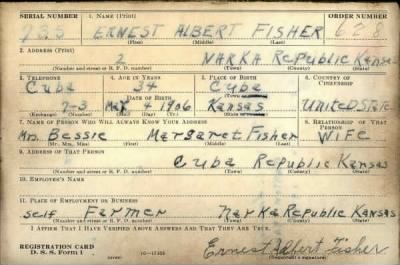 SERIAL NUMBER 1. NAME (Print) ORDER NUMBER
725 ERNEST ALBERT FISHER 628
(First) (Middle) (Last)
2. ADDRESS (Print)
2 NARKA Republic Kansas
(Number and street or R. F. D. number) (Town) (County) (State)
3. TELEPHONE 4. AGE IN YEARS 5. PLACE OF BIRTH 6. COUNTRY OF CITIZENSHIP
Cuba 34 Cuba
DATE OF BIRTH (Town or county)
7-3 May 4 1906 Kansas United State
(Exchange) (Number) (Mo.) (Day) (Yr.) (State or country)
7. NAME OF PERSON WHO WILL ALWAYS KNOW YOUR ADDRESS 8. RELATIONSHIP OF THAT PERSON
Mrs. Bessie Margaret Fisher WIFE
(Mr., Mrs., Miss) (First) (Middle) (Last)
9. ADDRESS OF THAT PERSON
Cuba Republic Kansas
(Number and street or R. F. D. number) (Town) (County) (State)
10. EMPLOYER'S NAME
11. PLACE OF EMPLOYMENT OR BUSINESS
self Farmer Narka Republic Kansas
(Number and street or R. F. D. number) (Town) (County) (State)
I AFFIRM THAT I HAVE VERIFIED ABOVE ANSWERS AND THAT THEY ARE TRUE.
REGISTRATION CARD
D. S. S. Form 1 (over) Ernest Albert Fisher
(Registrant's signature)